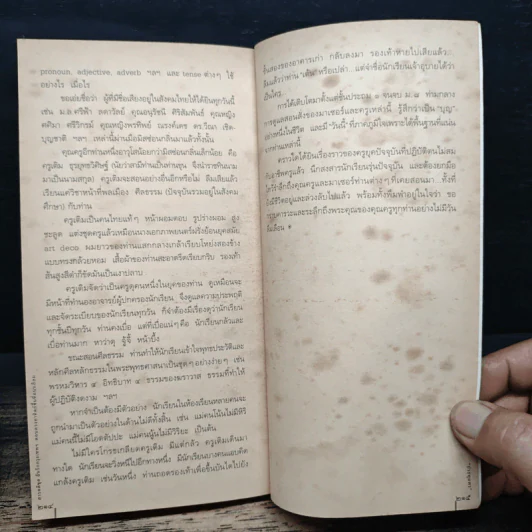 pronoun, adjective, adverb ฯลฯ และ tense ต่างๆ ใช้
อย่างไร เมื่อไร
ขอเอ่ยชื่อว่า ผู้ที่มีชื่อเสียงอยู่ในสังคมไทยให้ได้ยินทุกวันนี้
เช่น ม.ล.ศรีฟ้า ลดาวัลย์ คุณอนุรัชนี ศิริสัมพันธ์ คุณหญิง
คุณหญิงพรทิพย์ ณรงค์เดช ดร.วีณา เชิด-
บุญชาติ ฯลฯ เหล่านี้ผ่านเมื่อมิสซ่อนกลิ่นมาแล้วทั้งนั้น
คุณครูอีกท่านหนึ่งอาวุโสน้อยกว่ามิสซ่อนกลิ่นเล็กน้อย คือ
ครูเติม
มาเป็นนามสกุล) ครูเติมจะสอนอย่างอื่นอีกหรือไม่ ลืมเสียแล้ว
เรียนแต่วิชาหน้าที่พลเมือง ศีลธรรม (ปัจจุบันรวมอยู่ในสังคม
ศึกษา) กับท่าน
ครูเติมเป็นคนไทยแท้ๆ หน้าผมดอบ รูปร่างผอม สูง
ชะลูด แต่งชุดครูแล้วเหมือนนางเอกภาพยนตร์ฝรั่งย้อนยุคสมัย
art deco ผมยาวของท่านแสกกลางเกล้าเรียบใหญ่สองข้าง
แบบทรงกล้วยหอม เสื้อผ้าของท่านสะอาดรีดเรียบกริบ รองเท้า
ส้นสูงสีดำก็ขัดมันเป็นเงาปลาบ
ครูเติมจัดว่าเป็นครูดุคนหนึ่งในยุคของท่าน ดูเหมือนจะ
มีหน้าที่ทำนองอาจารย์ผู้ปกครองนักเรียน จึงดูแลความประพฤติ
และจัดระเบียบของนักเรียนทุกวัน ก็จำต้องมีเรื่องดุว่านักเรียน
ทุกชั้นมีทุกวัน ท่านคงเบื่อ แต่ที่เบื่อแน่ๆ คือ นักเรียนกลัวและ
เบื่อท่านมาก หาว่าดุ จู้จี้ หน้าบึ้ง
ขณะสอนศีลธรรม ท่านทำให้นักเรียนเข้าใจพุทธประวัติและ
หลักศีลหลักธรรมในพระพุทธศาสนาเป็นชุดๆ อย่างง่ายๆ เช่น
พรหมวิหาร ๔ อิทธิบาท ๔ ธรรมของฆราวาส ธรรมที่ทำให้
ผู้ปฏิบัติงดงาม ฯลฯ
หากจำเป็นต้องมีตัวอย่าง นักเรียนในห้องเรียนหลายคนจะ
ถูกนำมาเป็นตัวอย่างในด้านไม่ดีทั้งสิ้น เช่น แม่คนโน้นไม่มีหิริ
แม่คนนี้ไม่มีโอตตัปปะ แม่คนนู้นไม่มีวิริยะ เป็นต้น
ไม่มีใครโกรธเกลียดครูเติม มีแต่กลัว ครูเติมเดินมา
ทางใด นักเรียนจะวิ่งหนีไปอีกทางหนึ่ง มีนักเรียนบางคนแอบคิด
แกล้งครูเติม เช่นวันหนึ่ง ท่านถอดรองเท้าเพื่อขึ้นบันไดไปยัง
๒๑๔
ชั้นสองของอาคารเก่า กลับลงมา รองเท้าหายไปเสียแล้ว
ลืมแล้วว่าท่าน "เต้น" หรือเปล่า แต่จำชื่อนักเรียนเจ้าอุบายได้ว่า
เป็นใคร
การได้เติบโตมาตั้งแต่ชั้นประถม ๑ จนจบ ม.๘ ท่ามกลาง
การดูแลสอนสั่งของมาเซอร์และครูเหล่านี้ รู้สึกว่าเป็น "บุญ"
อย่างหนึ่งในชีวิต และมี "วันนี้" ที่ภาคภูมิใจเพราะได้พื้นฐานที่แน่น
จากท่านเหล่านี้
คราวใดได้ยินเรื่องราวของครูยุคปัจจุบันที่ปฏิบัติตนไม่สม
กับอาชีพครูแล้ว นักสงสารนักเรียนรุ่นปัจจุบัน และต้องยกมือ
ไหว้รำลึกถึงคุณครูและมาเซอร์ท่านต่างๆ ที่เคยสอนมา ทั้งที่
ยังมีชีวิตอยู่และล่วงลับไปแล้ว พร้อมทั้งพึมพำอยู่ในใจว่า ขอ
กราบคารวะและระลึกถึงพระคุณของคุณครูทุกท่านอย่างไม่มีวัน
ลืมเลือน